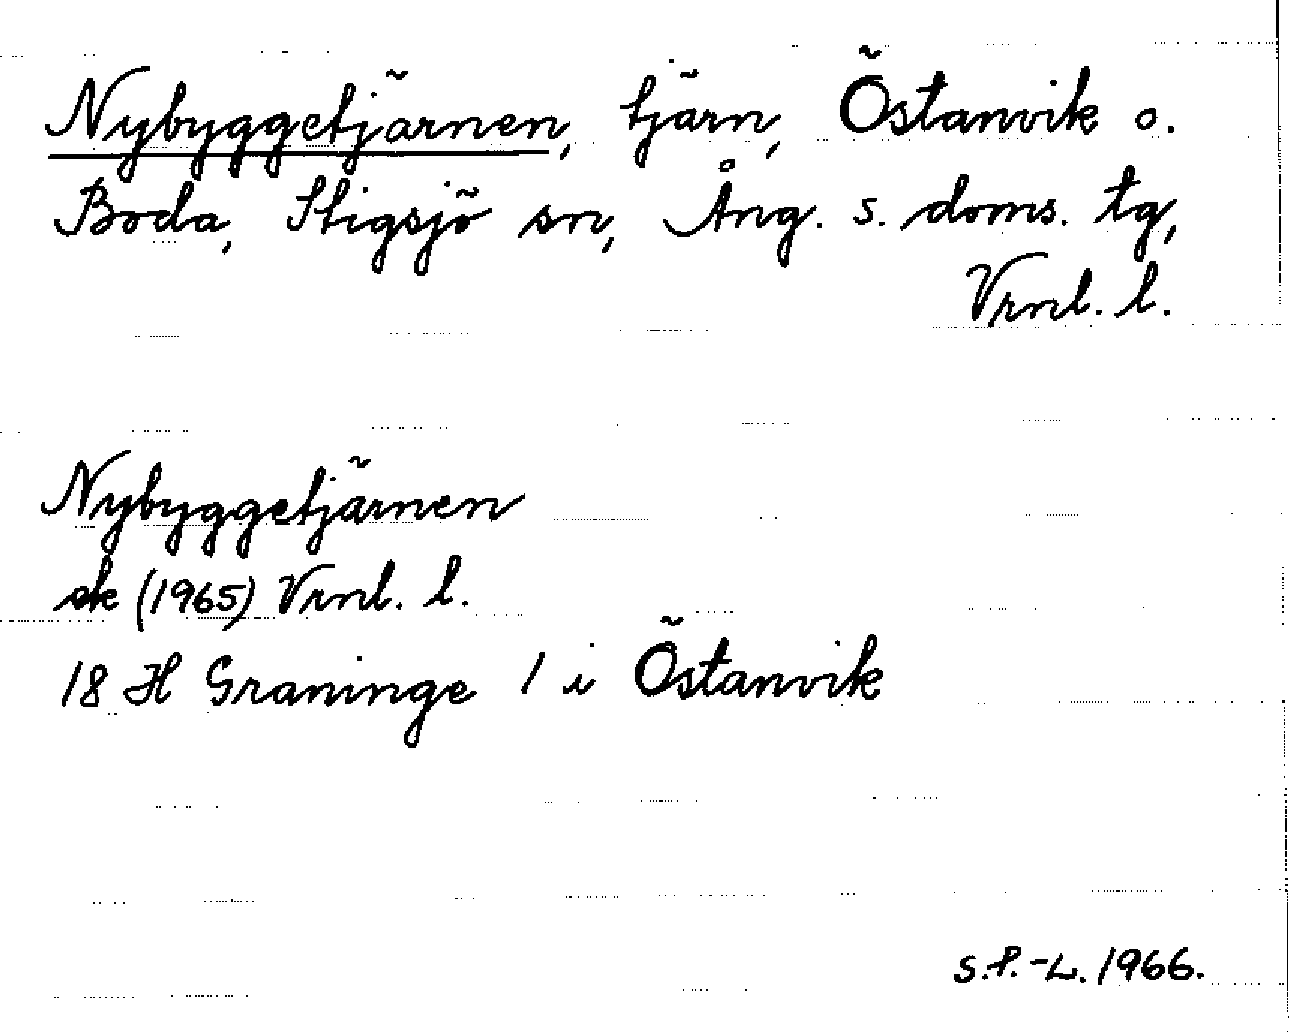 Nybyggetjärnen, tjärn, Östanvik o.
Boda, Stigsjö sn, Ång. s. doms. tg,
Vrnl. l.
Nybyggetjärnen
ek (1965) Vrnl. l.
18 H Graninge 1 i Östanvik
S.P.-L. 1966.